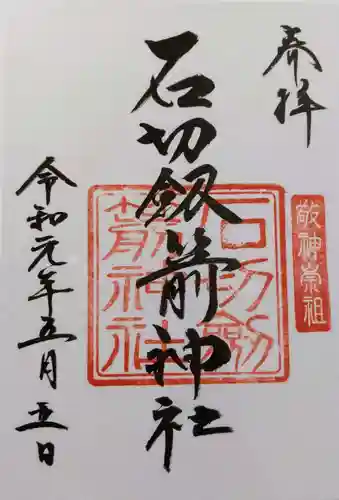 奉拝
敬神崇祖
石切劔箭神社
石切劔箭神社
令和元年五月五日